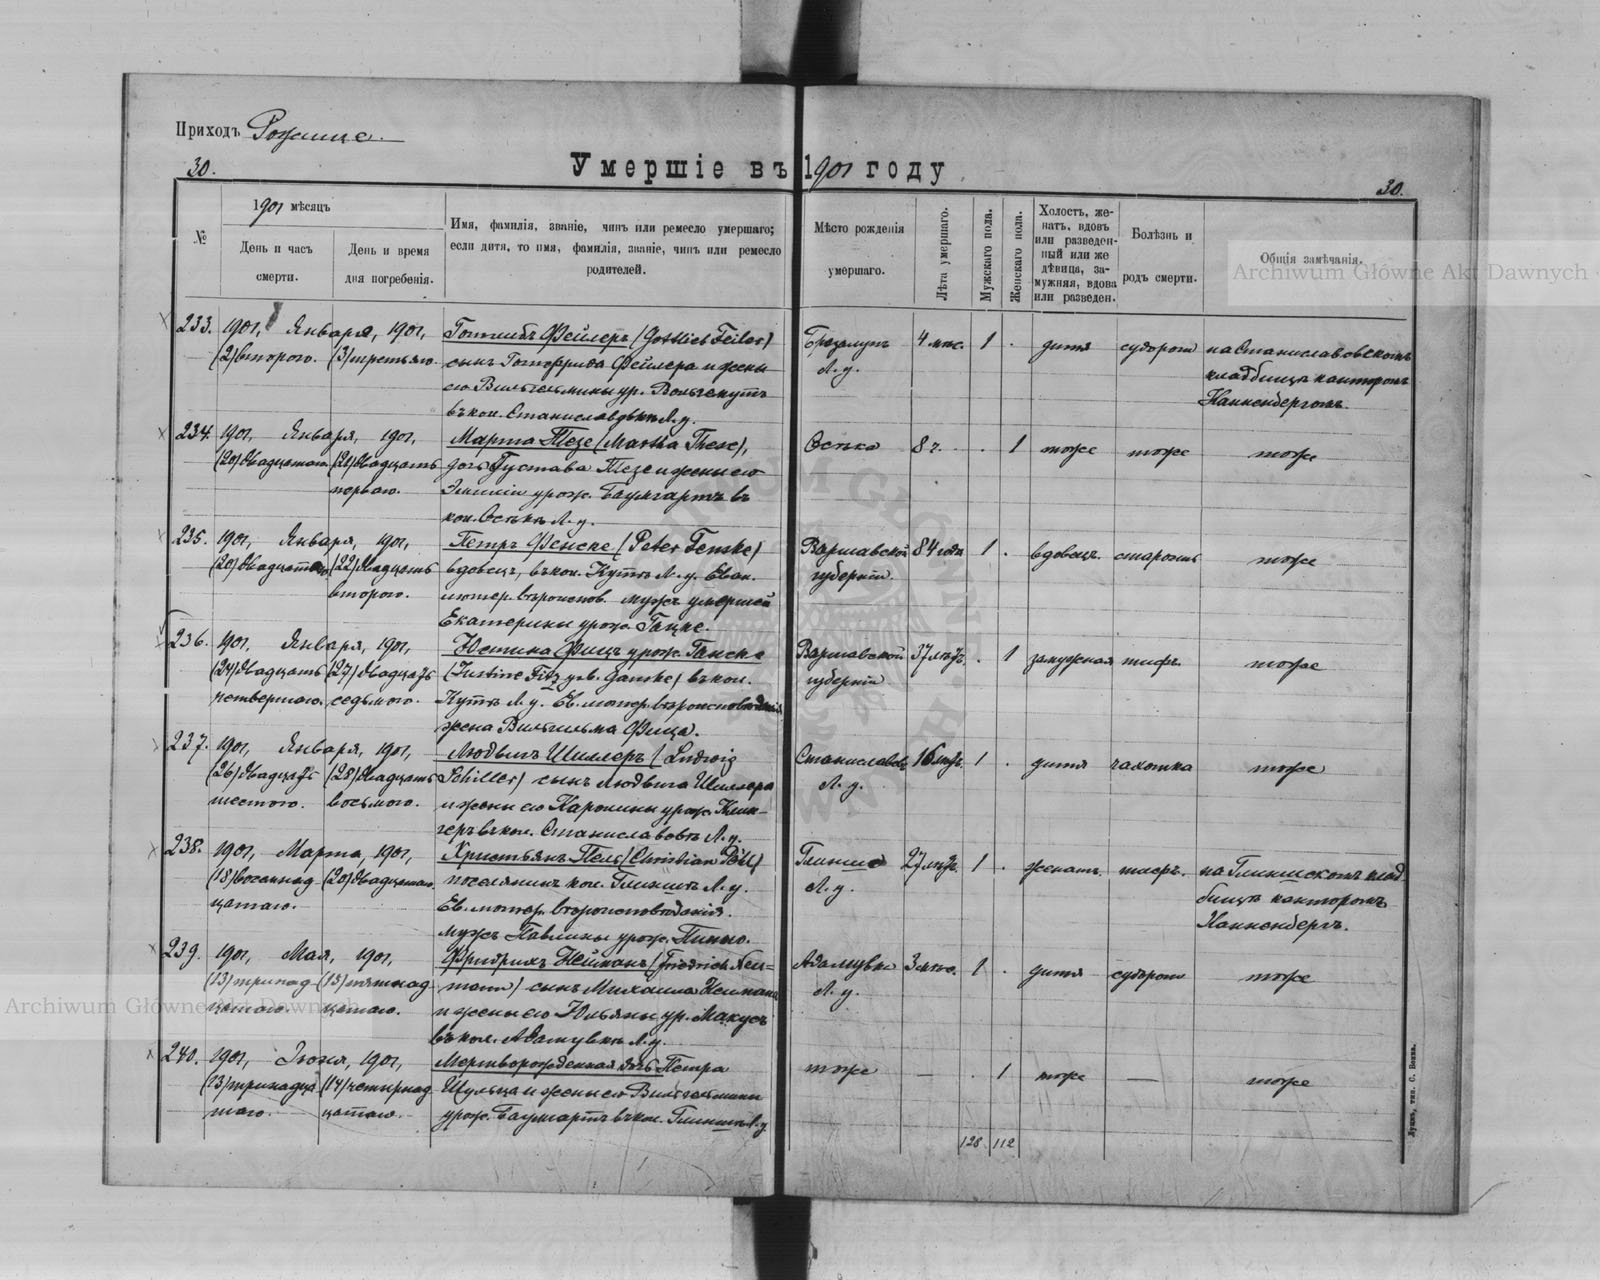 Приходъ Рожище.
30.
Умершіе въ 1901 году
30.
№
1901 мѣсяцъ
День и часъ смерти.
День и время дня погребенія.
Имя, фамилія, званіе, чинъ или ремесло умершаго;
если дитя, то имя, фамилія, званіе, чинъ или ремесло
родителей.
Мѣсто рожденія
умершаго.
Лѣта умершаго.
Мужскаго пола.
Женскаго пола.
Холостъ, же-
натъ, вдовъ
или разведен-
ный или же
дѣвица, за-
мужняя, вдова
или разведен.
Болѣзнь и
родъ смерти.
Общія замѣчанія.
Archiwum Główne Akt Dawnych
233. 1901, Января, 1901, Готлибъ Фейлеръ (Gottlieb Feiler) 4 мѣс. 1 . дитя судороги на Станиславовскомъ
(2) второго. (3) третьяго. сынъ Готфрида Фейлера и жены Л. у. кладбищѣ канторомъ
его Вильгельмины ур. Вольгемутъ Нанненбергомъ.
въ кол. Станиславовкѣ Л. у.
234. 1901, Января, 1901, Марта Тезе (Martha These), Осѣка 8 ч. . 1 тоже тоже тоже
(20) двадцатаго (21) двадцать дочь Густава Тезе и жены его
перваго. Эмиліи урож. Баумгартъ въ
кол. Осѣкѣ Л. у.
235. 1901, Января, 1901, Петръ Фенске (Peter Fenske) Варшавской 84 года 1 . вдовецъ старость тоже
(20) двадцатаго (22) двадцать вдовецъ, въ кол. Кутъ Л. у. Еван. губерніи
второго. лютер. вѣроиспов. мужъ умершей
Екатерины урож. Гацке.
236. 1901, Января, 1901, Юстина Фицъ урож. Ганске Варшавской 37 лѣтъ . 1 замужняя тифъ. тоже
(24) двадцать (27) двадцать (Justine Fitz geb. Ganske) въ кол. губерніи
четвертаго. седьмого. Кутъ Л. у. Ев. лютер. вѣроисповѣданія
жена Вильгельма Фица.
237. 1901, Января, 1901, Людвигъ Шиллеръ (Ludwig Станиславовк. 16 лѣтъ 1 . дитя чахотка тоже
(26) двадцать (28) двадцать Schiller) сынъ Людвига Шиллера Л. у.
шестого. восьмого. и жены его Каролины урож. Клин-
геръ въ кол. Станиславовкѣ Л. у.
238. 1901, Марта, 1901, Христьянъ Пель (Christian Pöhl) Глинище 27 лѣтъ 1 . женатъ. тифъ. на Глинищскомъ клад-
(18) восемнад (20) двадцатаго. поселянинъ кол. Глинищъ Л. у. Л. у. бищѣ канторомъ
цатаго. Ев. лютер. вѣроисповѣданія. Нанненбергъ.
мужъ Павлины урож.
239. 1901, Мая, 1901, Фридрихъ Нейманъ (Friedrich Neu= Адамувка 3 мѣс. 1 . дитя судороги тоже
(13) тринад (15) пятнад mann) сынъ Михаила Неймана Л. у.
цатаго. цатаго. и жены его Юльяны ур. Макусъ
въ кол. Адамувкѣ Л. у.
240. 1901, Іюня, 1901, Мертворожденная дочь Петра тоже — . 1 тоже — тоже
(13) тринадца (14) четырнад Шульца и жены его Вильгельмины
таго. цатаго. урож. Баумгартъ въ кол. Глинищѣ Л. у.
128 112
Archiwum Główne Akt Dawnych
Луцкъ, тип. С. Бокка.